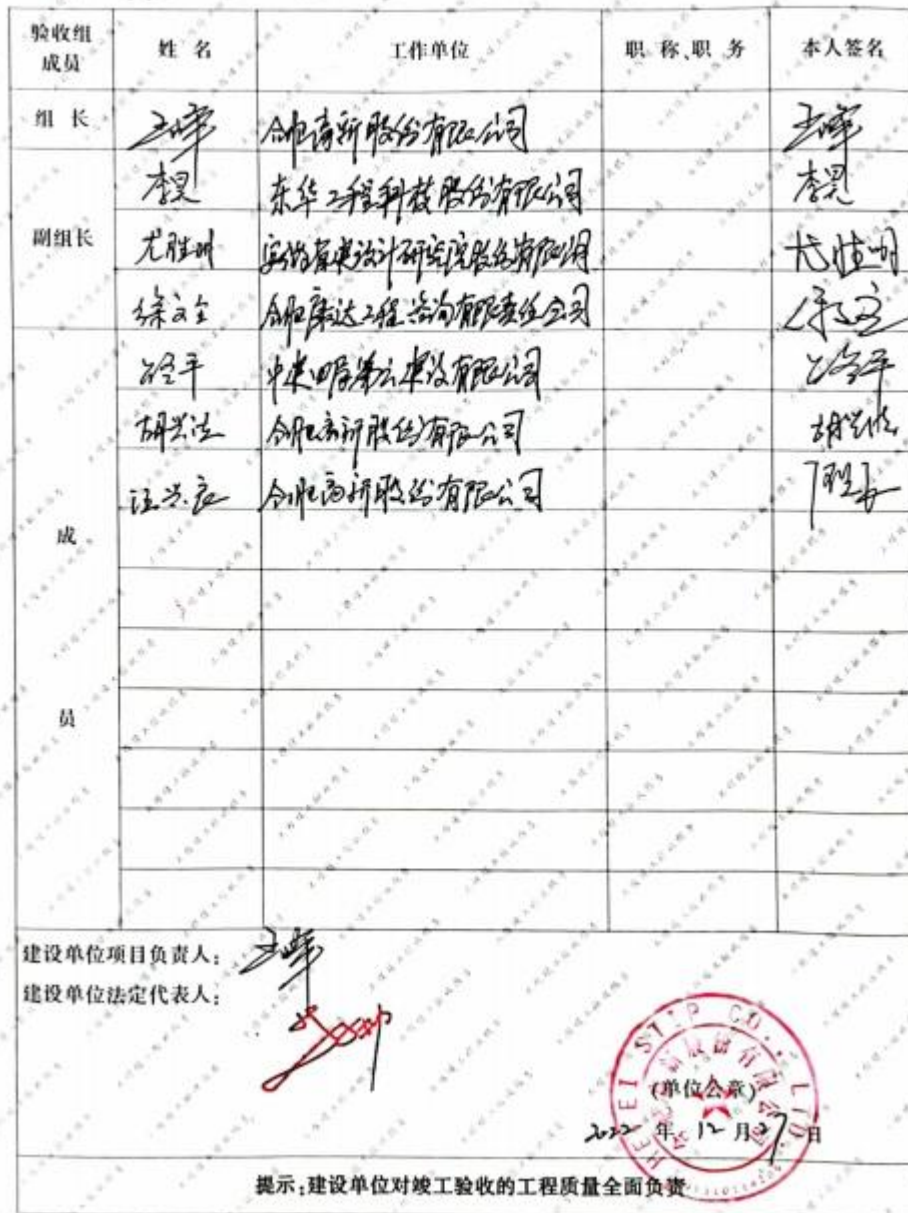 验收组成员 姓名 工作单位 职称、职务 本人签名
组长 合肥高新股份有限公司
副组长 李昊 东华工程科技股份有限公司 李昊
尤胜明 安徽省建设计研究院股份有限公司 尤胜明
徐文全 合肥康达工程咨询有限责任公司
冷平 中建四局第六建设有限公司 冷平
胡兴法 合肥高新股份有限公司 胡兴法
成员 汪兴良 合肥高新股份有限公司
建设单位项目负责人:
建设单位法定代表人:
HEFEI STIP CO., LTD.
(单位公章)
2022年12月27日
提示:建设单位对竣工验收的工程质量全面负责